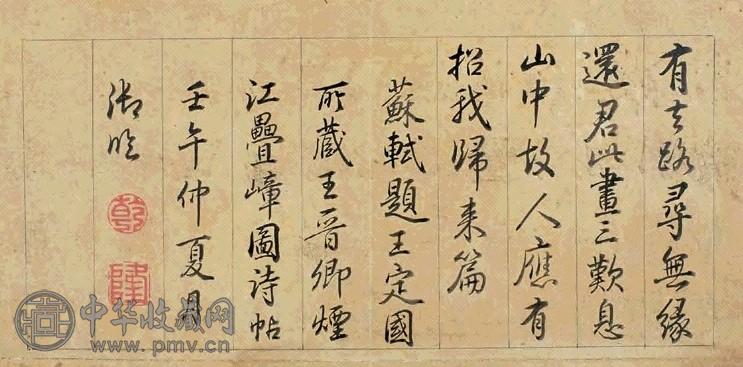 有去路尋無緣
還君此畫三歎息
山中故人應有
招我歸來篇
蘇軾題王定國
所藏王晉卿煙
江疊嶂圖詩帖
壬午仲夏月
御臨
乾
隆
中华收藏网
www.pmv.cn